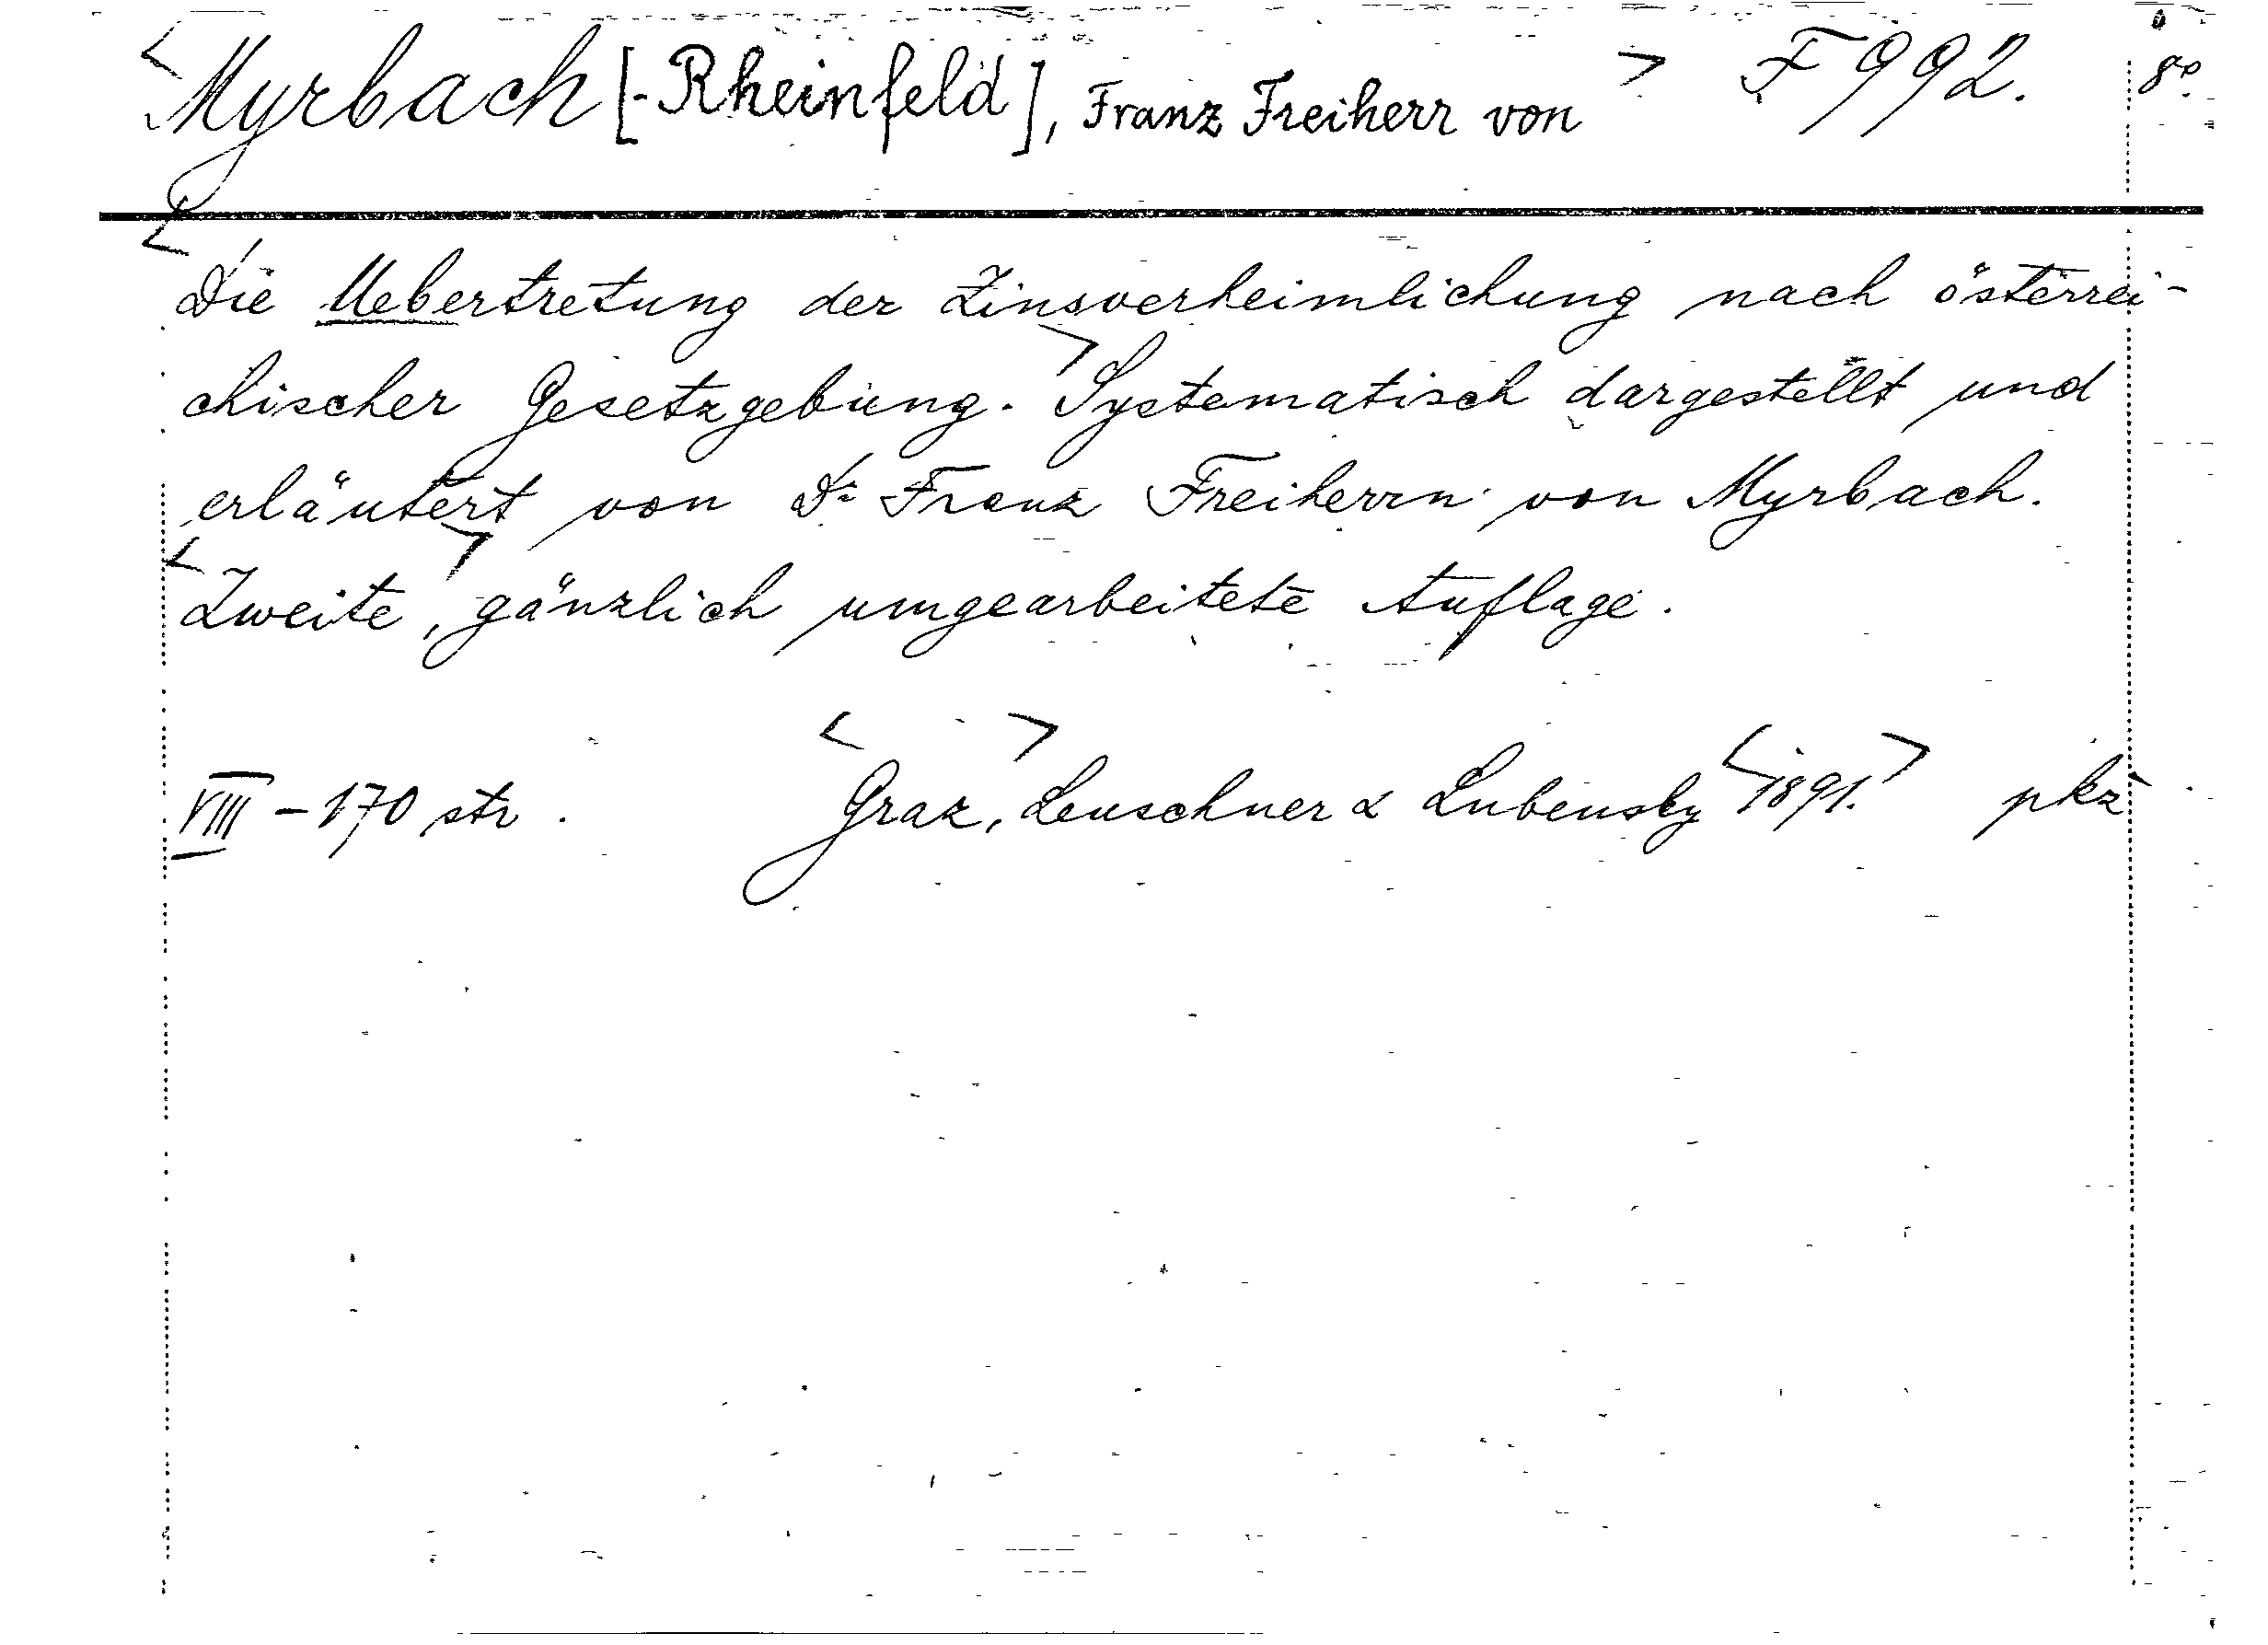 <Myrbach [-Rheinfeld], Franz Freiherr von> F 992. 8°
<Die Uebertretung der Zinsverheimlichung nach österrei-
chischer Gesetzgebung.> Systematisch dargestellt und
erläutert von Dr Franz Freiherrn von Myrbach.
<Zweite>, gänzlich umgearbeitete Auflage.
VIII - 170 str. <Graz,> Leuschner & Lubensky <1891.> pkż